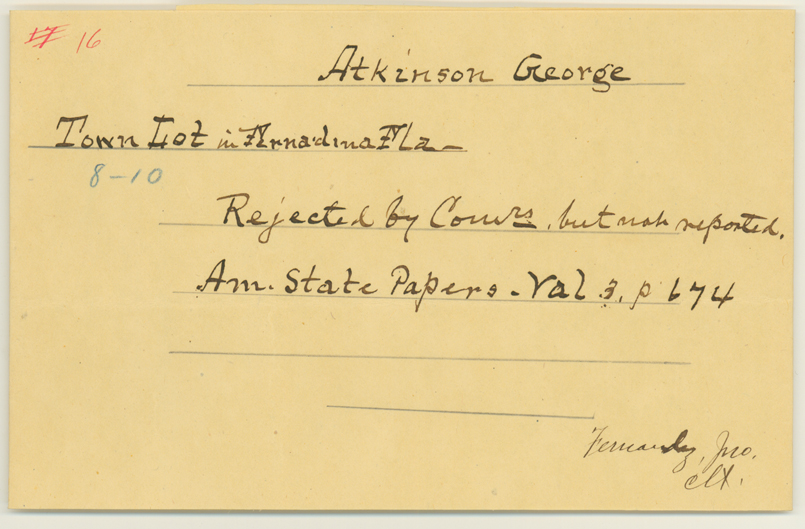 # 16
Atkinson George
Town Lot in Fernadina Fla -
8-10
Rejected by Comrs. but not reported.
Am. State Papers - Vol 3. p 674
Fernandz, Jno.